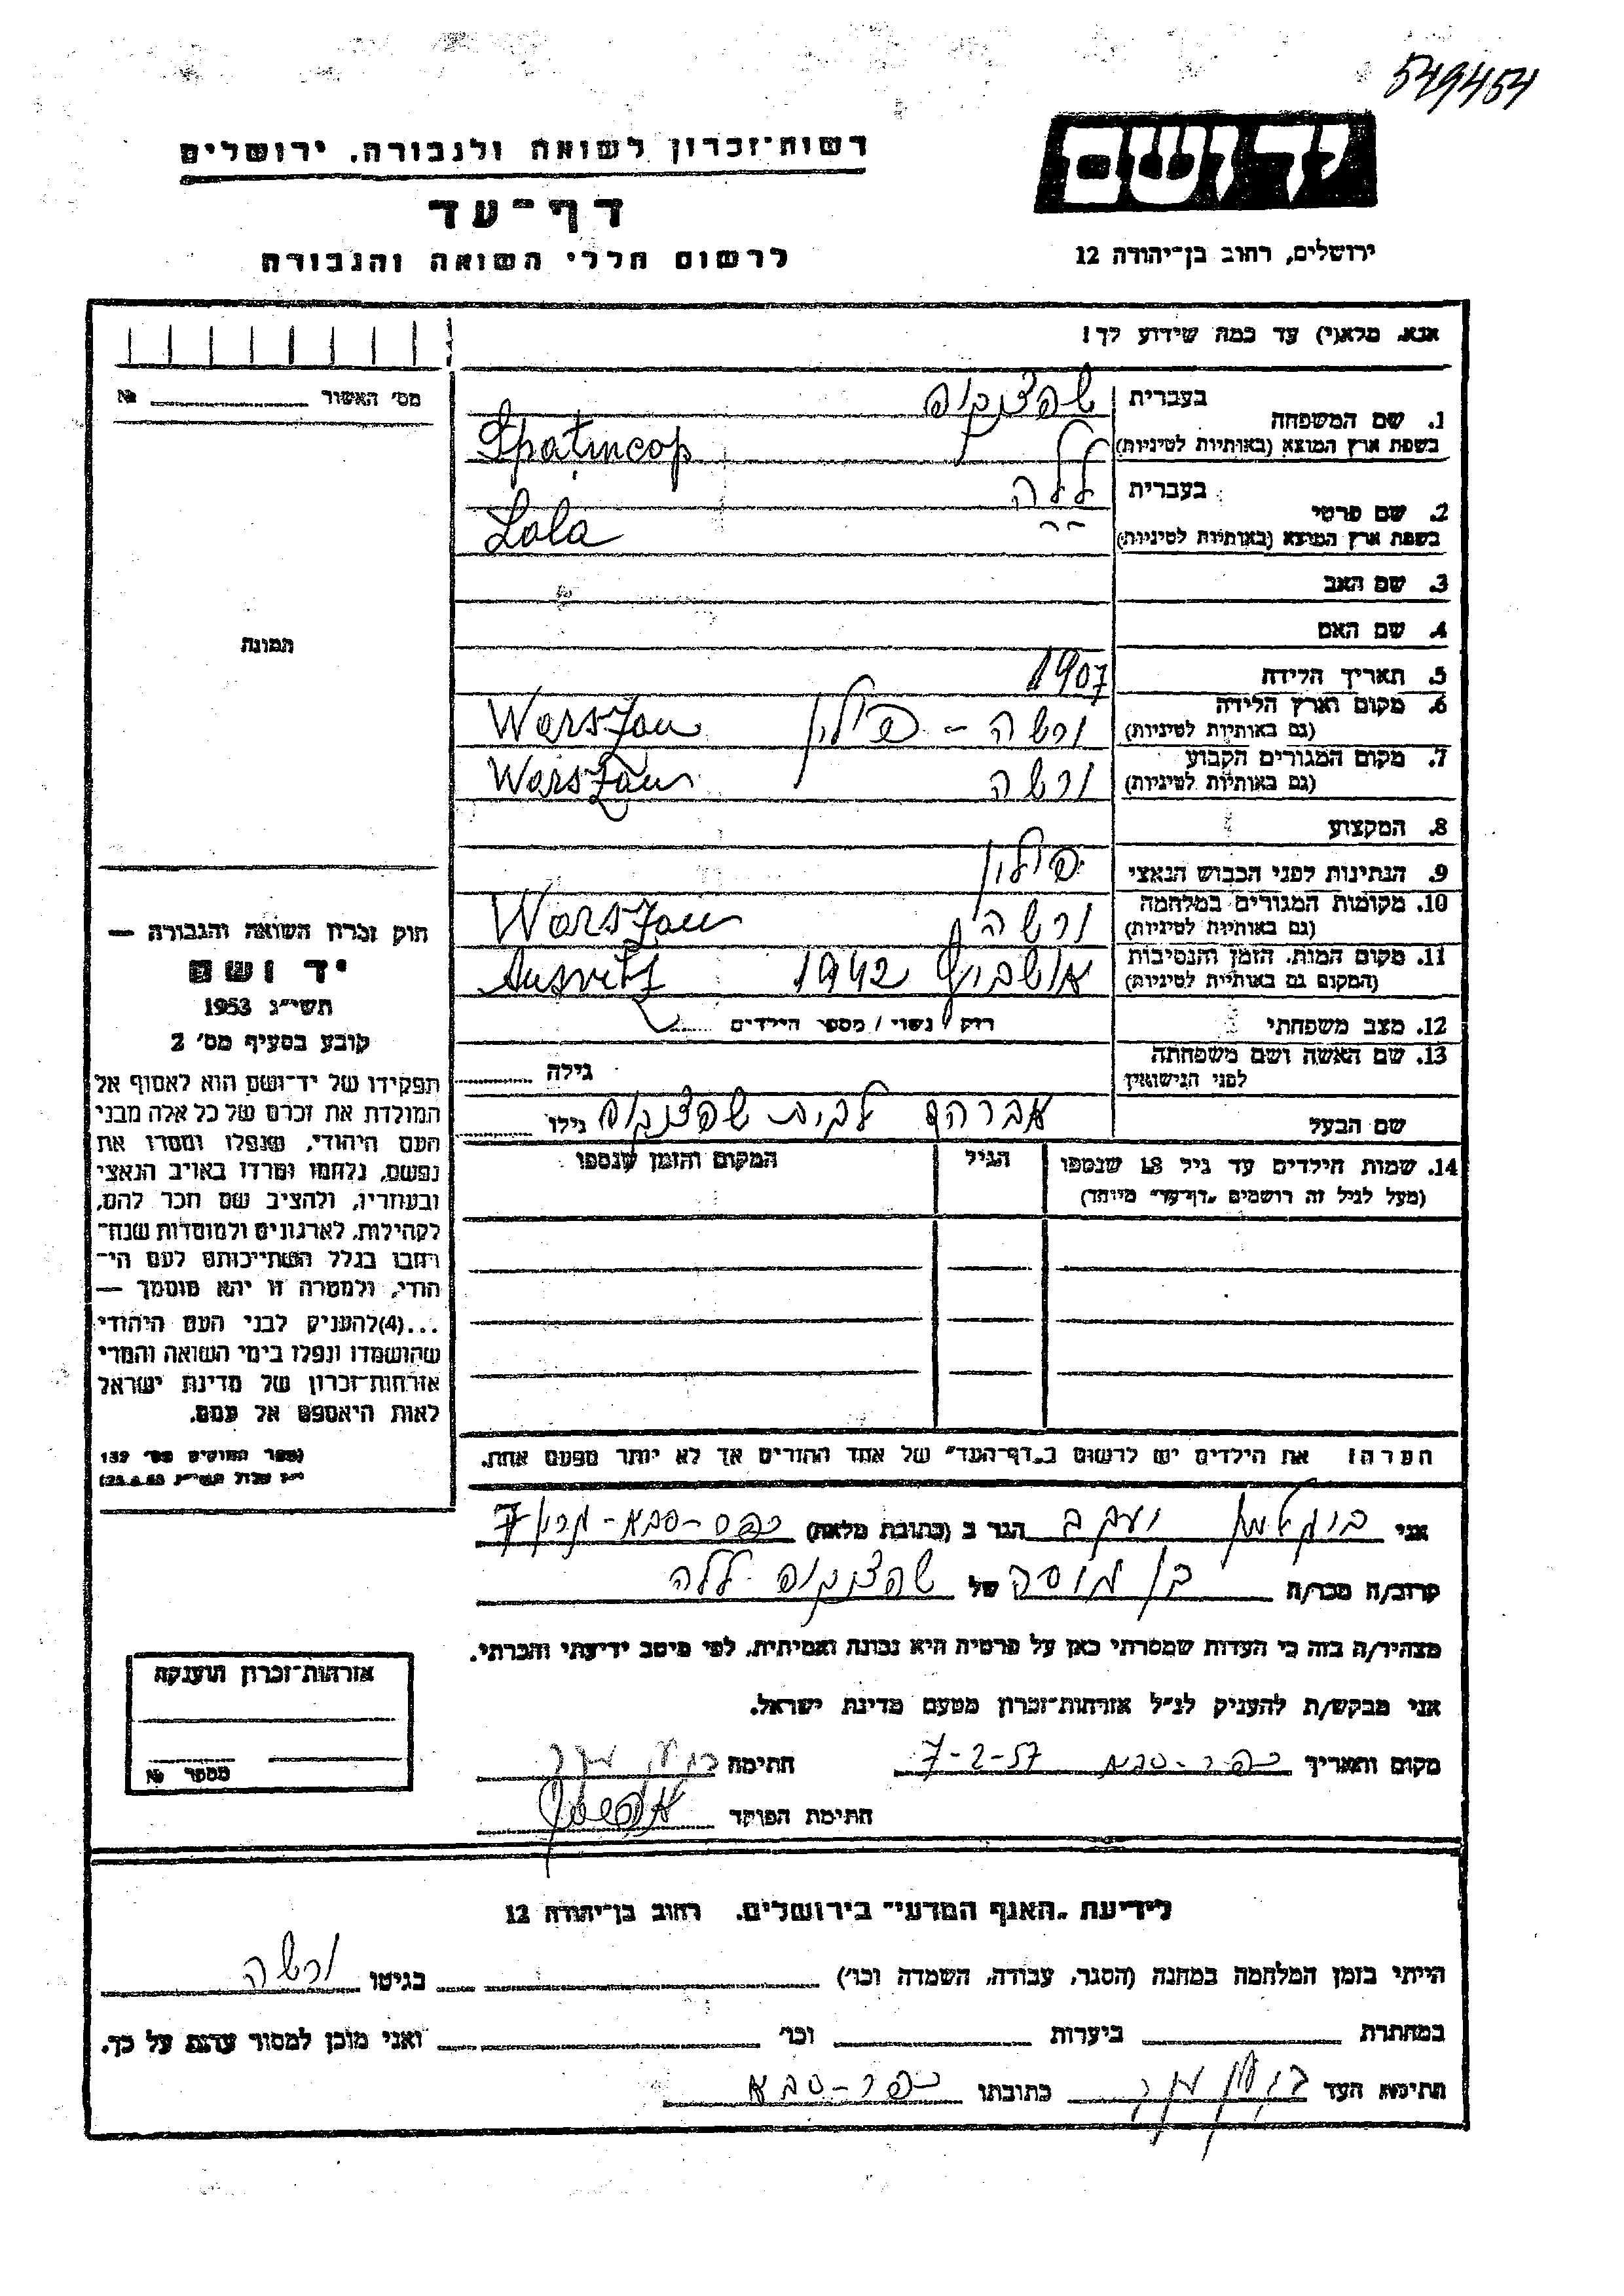 549454
יד ושם
ירושלים, רחוב בן־יהודה 12
רשות־זכרון לשואה ולגבורה, ירושלים
דף־עד
לרשום חללי השואה והגבורה
אנא, מלא(י) עד כמה שידוע לך!
מס׳ האשור № 
1. שם המשפחה
בעברית
בשפת ארץ המוצא (באותיות לטיניות)
Spatncop
2. שם פרטי
בעברית ללה
בשפת ארץ המוצא (באותיות לטיניות)
Lola
3. שם האב
4. שם האם
5. תאריך הלידה 1907
6. מקום וארץ הלידה ורשה - פולין Warszau
(גם באותיות לטיניות)
7. מקום המגורים הקבוע ורשה Warszau
(גם באותיות לטיניות)
8. המקצוע
9. הנתינות לפני הכבוש הנאצי פולין
10. מקומות המגורים במלחמה ורשה Warszau
(גם באותיות לטיניות)
11. מקום המות, הזמן והנסיבות אושביץ 1942 Ausvitz
(המקום גם באותיות לטיניות)
12. מצב משפחתי רוק / נשוי / מספר הילדים
13. שם האשה ושם משפחתה
לפני הנישואין גילה
שם הבעל אברהם גילו
14. שמות הילדים עד גיל 18 שנספו הגיל המקום והזמן שנספו
(מעל לגיל זה רושמים „דף־עד״ מיוחד)
הערה! את הילדים יש לרשום ב„דף־העד״ של אחד ההורים אך לא יותר מפעם אחת.
תמונה
חוק זכרון השואה והגבורה —
יד ושם
תשי״ג 1953
קובע בסעיף מס׳ 2
תפקידו של יד־ושם הוא לאסוף אל
המולדת את זכרם של כל אלה מבני
העם היהודי, שנפלו ומסרו את
נפשם, נלחמו ומרדו באויב הנאצי
ובעוזריו, ולהציב שם וזכר להם,
לקהילות, לארגונים ולמוסדות שנח־
רבו בגלל השתייכותם לעם הי־
הודי, ולמטרה זו יהא מוסמך —
...(4)להעניק לבני העם היהודי
שהושמדו ונפלו בימי השואה והמרי
אזרחות־זכרון של מדינת ישראל
לאות היאספם אל עמם.
(ספר החוקים מס׳ 132
י״ז אלול תשי״ג 28.8.53)
אני יעקב הגר ב (כתובת מלאה) כפר-סבא
קרוב/ה מכר/ה של ללה
מצהיר/ה בזה כי העדות שמסרתי כאן על פרטיה היא נכונה ואמיתית, לפי מיטב ידיעתי והכרתי.
אני מבקש/ת להעניק לנ״ל אזרחות־זכרון מטעם מדינת ישראל.
מקום ותאריך כפר-סבא 7-2-57 חתימה
חתימת הפוקד
אזרחות־זכרון הוענקה
מספר №
לידיעת „האגף המדעי״ בירושלים, רחוב בן־יהודה 12
הייתי בזמן המלחמה במחנה (הסגר, עבודה, השמדה וכו׳) בגיטו ורשה
במחתרת ביערות וכו׳ ואני מוכן למסור עדות על כך.
חתימת העד כתובתו כפר-סבא